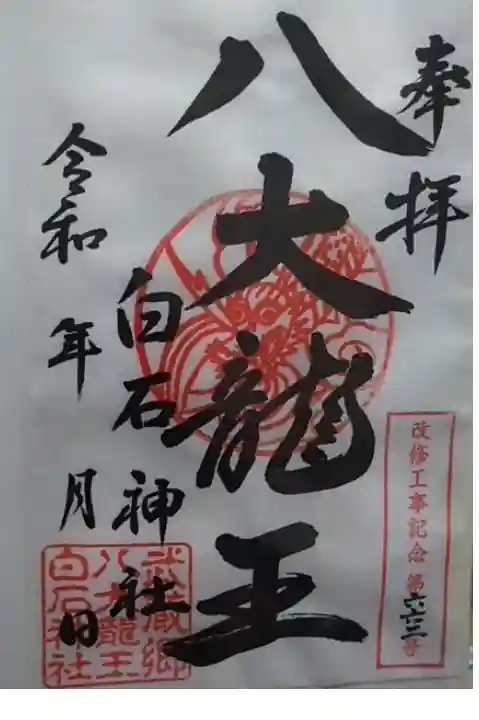 奉拝
八大龍王
白石神社
令和 年 月 日
改修工事記念 第六三号
武蔵郷
八大龍王
白石神社